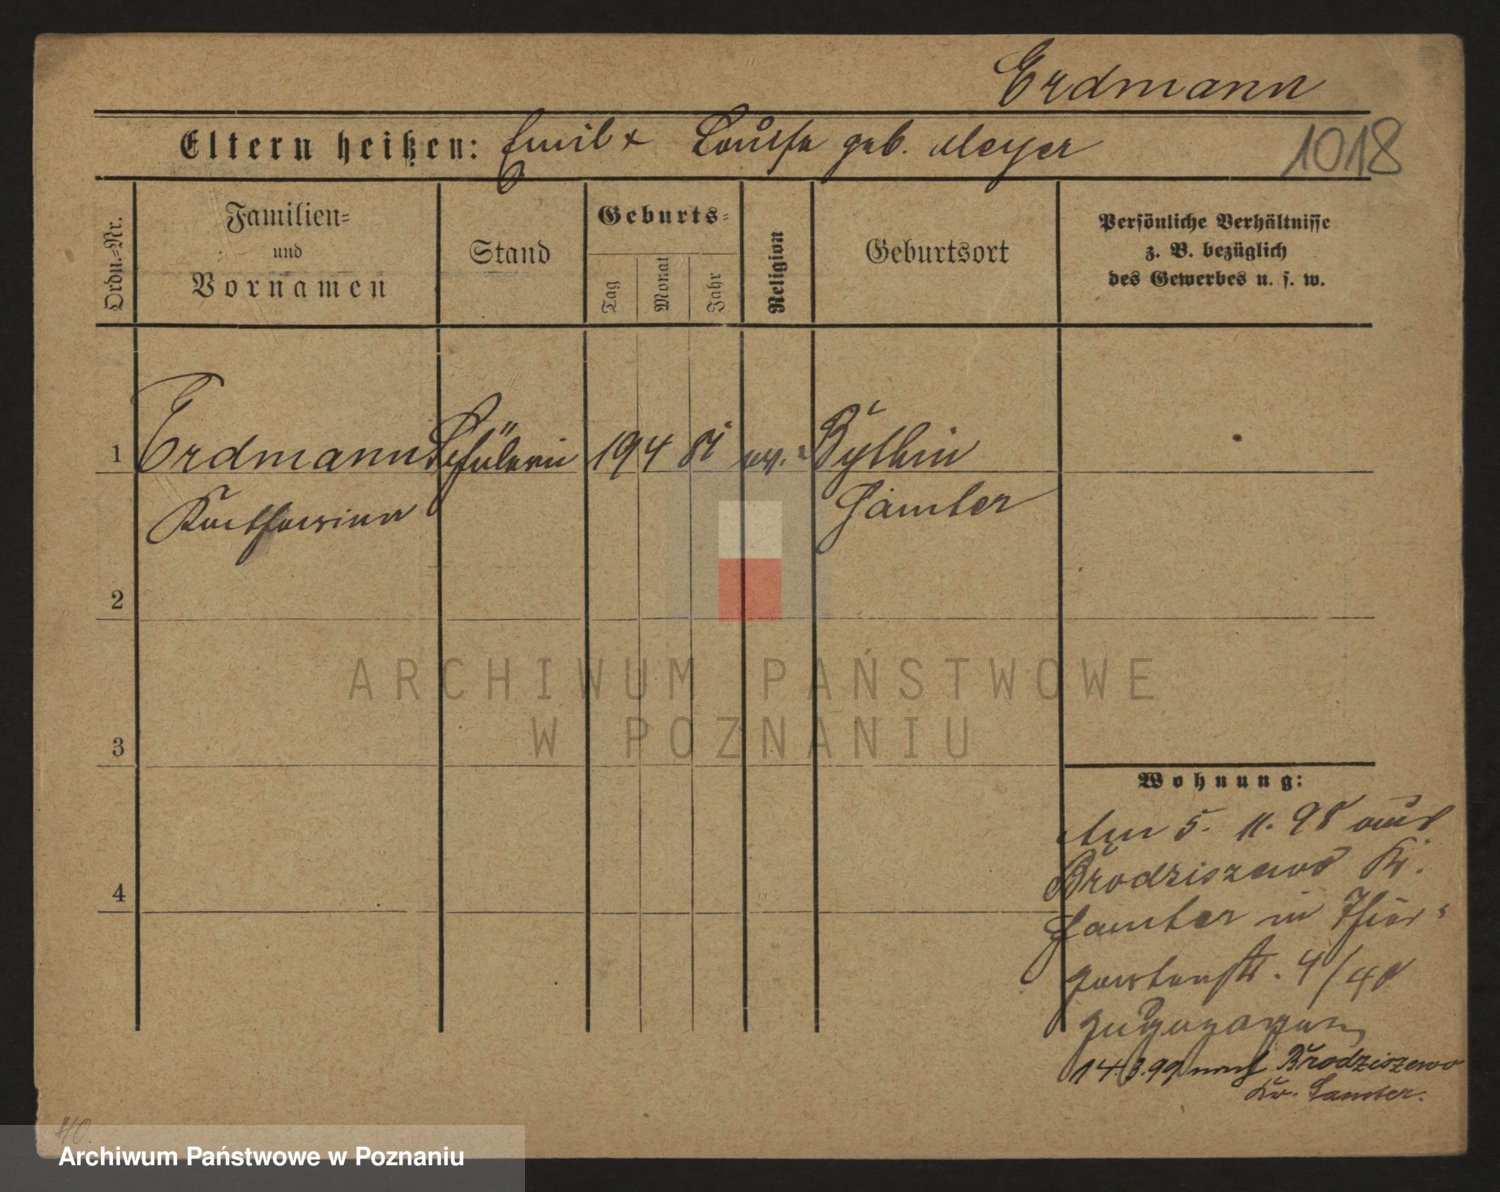 Erdmann
Eltern heißen: Emil + Louise geb. Meyer
1018
Ordn.-Nr.
Familien-
und
Vornamen
Stand
Geburts-
Tag
Monat
Jahr
Religion
Geburtsort
Persönliche Verhältnisse
z. B. bezüglich
des Gewerbes u. s. w.
1 Erdmann Schülerin 19 4 81 ev. Bythin
Katharina Samter
2
3
4
ARCHIWUM PAŃSTWOWE
W POZNANIU
Wohnung:
Am 5. 11. 98 aus
Brodziszewo Kr.
Samter in Thier-
gartenstr. 4/48
zugezogen
14.3.99 nach Brodziszewo
Kr. Samter.
Archiwum Państwowe w Poznaniu